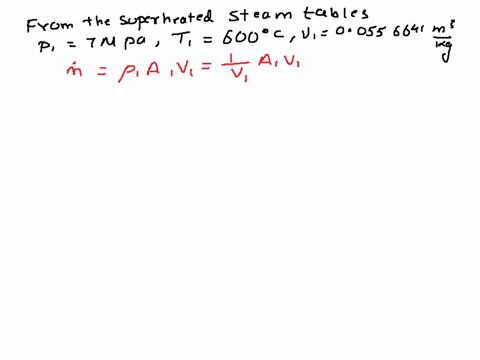 From the superheated steam tables
P₁ = 7 M pa, T₁ = 600°C, V₁ = 0.055 6641 m³/kg
ṁ = ρ₁ A₁ V₁ = 1/V₁ A₁ V₁